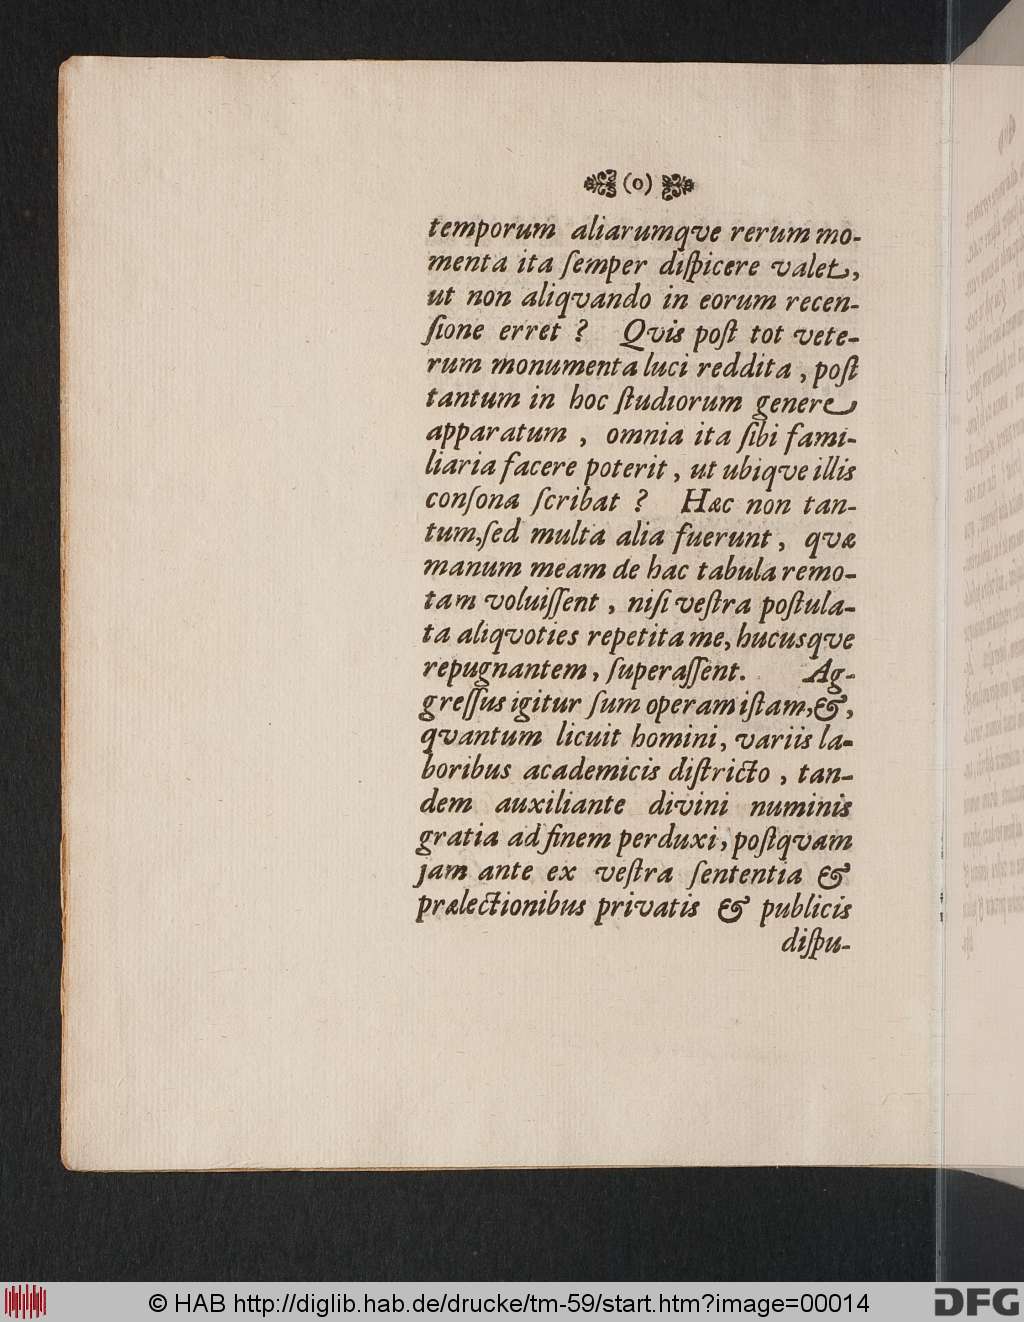 (o)
temporum aliarumqve rerum mo-
menta ita ſemper diſpicere valet,
ut non aliqvando in eorum recen-
ſione erret ? Qvis poſt tot vete-
rum monumenta luci reddita, poſt
tantum in hoc ſtudiorum genere
apparatum , omnia ita ſibi fami-
liaria facere poterit, ut ubiqve illis
conſona ſcribat ? Hæc non tan-
tum,ſed multa alia fuerunt, qvæ
manum meam de hac tabula remo-
tam voluiſſent, niſi veſtra poſtula-
ta aliqvoties repetita me, hucusqve
repugnantem, ſuperaſſent. Ag-
greſſus igitur ſum operam iſtam,&,
qvantum licuit homini, variis la-
boribus academicis diſtricto, tan-
dem auxiliante divini numinis
gratia ad finem perduxi, poſtqvam
jam ante ex veſtra ſententia &
prælectionibus privatis & publicis
diſpu-
© HAB http://diglib.hab.de/drucke/tm-59/start.htm?image=00014
DFG